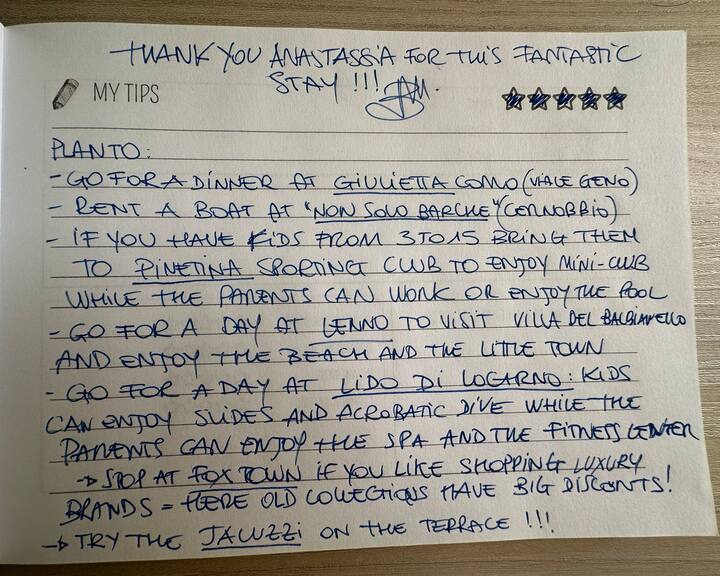 THANK YOU ANASTASSIA FOR THIS FANTASTIC
STAY !!!
MY TIPS
PLAN TO :
- GO FOR A DINNER AT GIULIETTA COMO (VIALE GENO)
- RENT A BOAT AT "NON SOLO BARCHE" (CERNOBBIO)
- IF YOU HAVE KIDS FROM 3 TO 15 BRING THEM
TO PINETINA SPORTING CLUB TO ENJOY MINI-CLUB
WHILE THE PARENTS CAN WORK OR ENJOY THE POOL
- GO FOR A DAY AT LENNO TO VISIT VILLA DEL BALBIANELLO
AND ENJOY THE BEACH AND THE LITTLE TOWN
- GO FOR A DAY AT LIDO DI LOCARNO : KIDS
CAN ENJOY SLIDES AND ACROBATIC DIVE WHILE THE
PARENTS CAN ENJOY THE SPA AND THE FITNESS CENTER
→ STOP AT FOX TOWN IF YOU LIKE SHOPPING LUXURY
BRANDS = HERE OLD COLLECTIONS HAVE BIG DISCONTS!
→ TRY THE JACUZZI ON THE TERRACE !!!